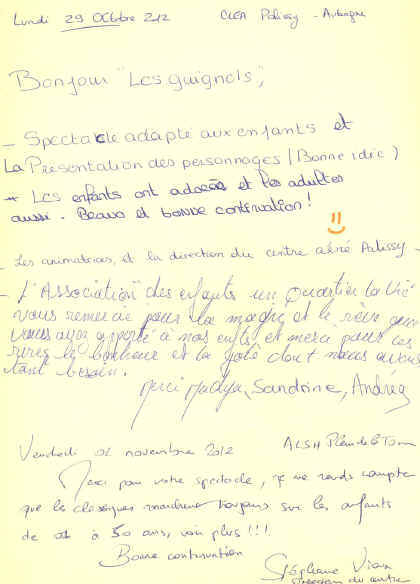 Lundi 29 Octobre 2012 CLEA Palissy - Aubagne
Bonjour "Les guignols",
- Spectacle adapté aux enfants et
La Présentation des personnages (Bonne idée)
* Les enfants ont adorés et les adultes
aussi. Bravo et bonne continuation!
- Les animatrices, et la direction du centre aéré Palissy -
- L'Association des enfants un Quartier la Vie
vous remercie pour la magie et le rêve que
vous avez apporté à nos enfts et merci pour les
rires le bonheur et la joie dont nous avons
tant besoin.
Merci, Sandrine, Andréa
Vendredi 02 novembre 2012 ALSH Plan de la Tour
Merci pour votre spectacle, je me rends compte
que les classiques marchent toujours sur les enfants
de 01 à 50 ans, voir plus !!!
Bonne continuation
Stéphane
Directeur du centre